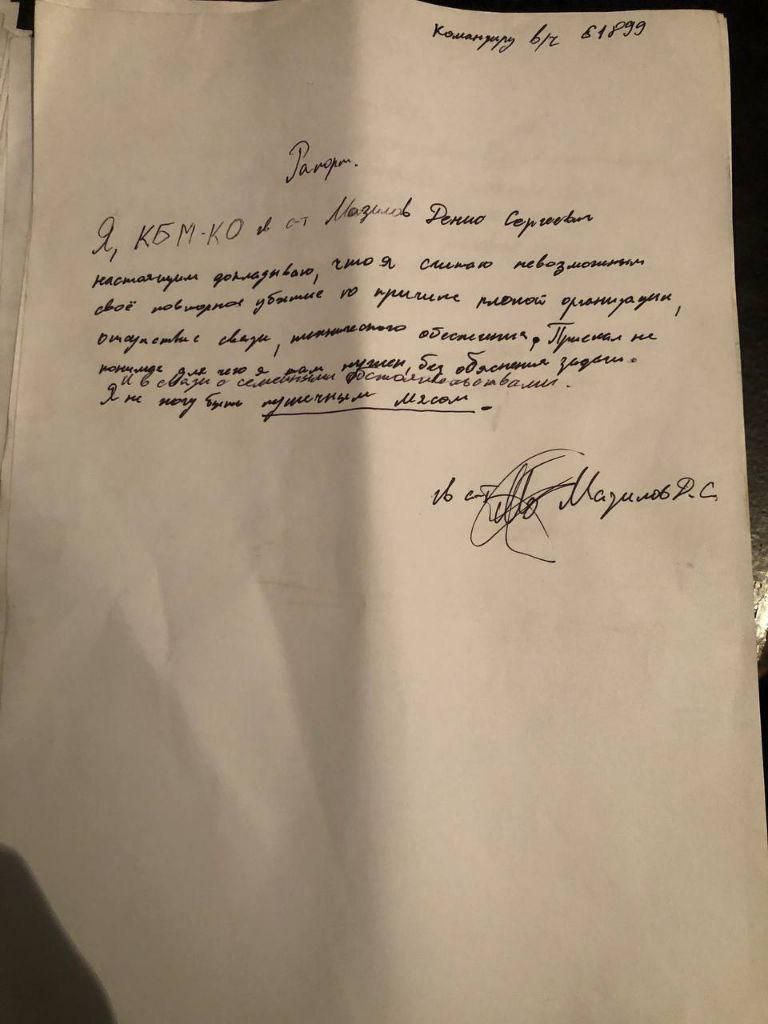 Командиру в/ч 61899
Рапорт.
Я, КБМ-КО гв с-т Мазилов Денис Сергеевич
настоящим докладываю, что я считаю невозможным
своё повторное убытие по причине плохой организации,
отсутствие связи, технического обеспечения. Приехал не
понимая для чего я там нужен, без объяснения задачи.
И в связи с семейными обстоятельствами.
Я не могу быть пушечным мясом.
гв с-т Мазилов Д.С.